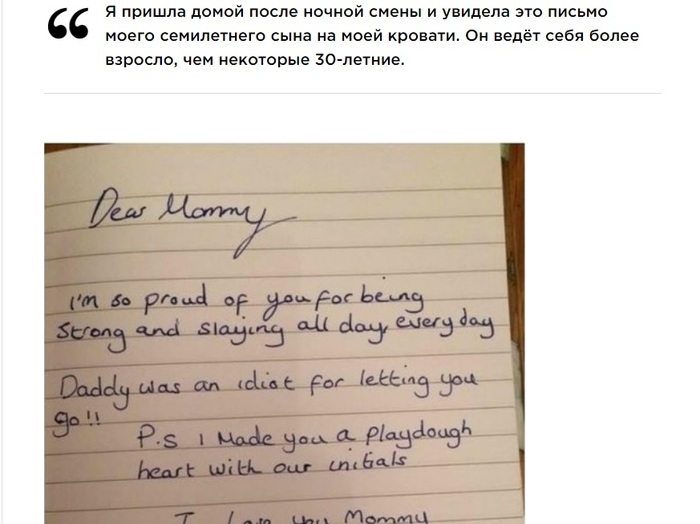 Я пришла домой после ночной смены и увидела это письмо
моего семилетнего сына на моей кровати. Он ведёт себя более
взросло, чем некоторые 30-летние.
Dear Mommy
I'm so proud of you for being
Strong and slaying all day, everyday
Daddy was an idiot for letting you
go!!
P.s I Made you a playdough
heart with our initials
I Love you Mommy